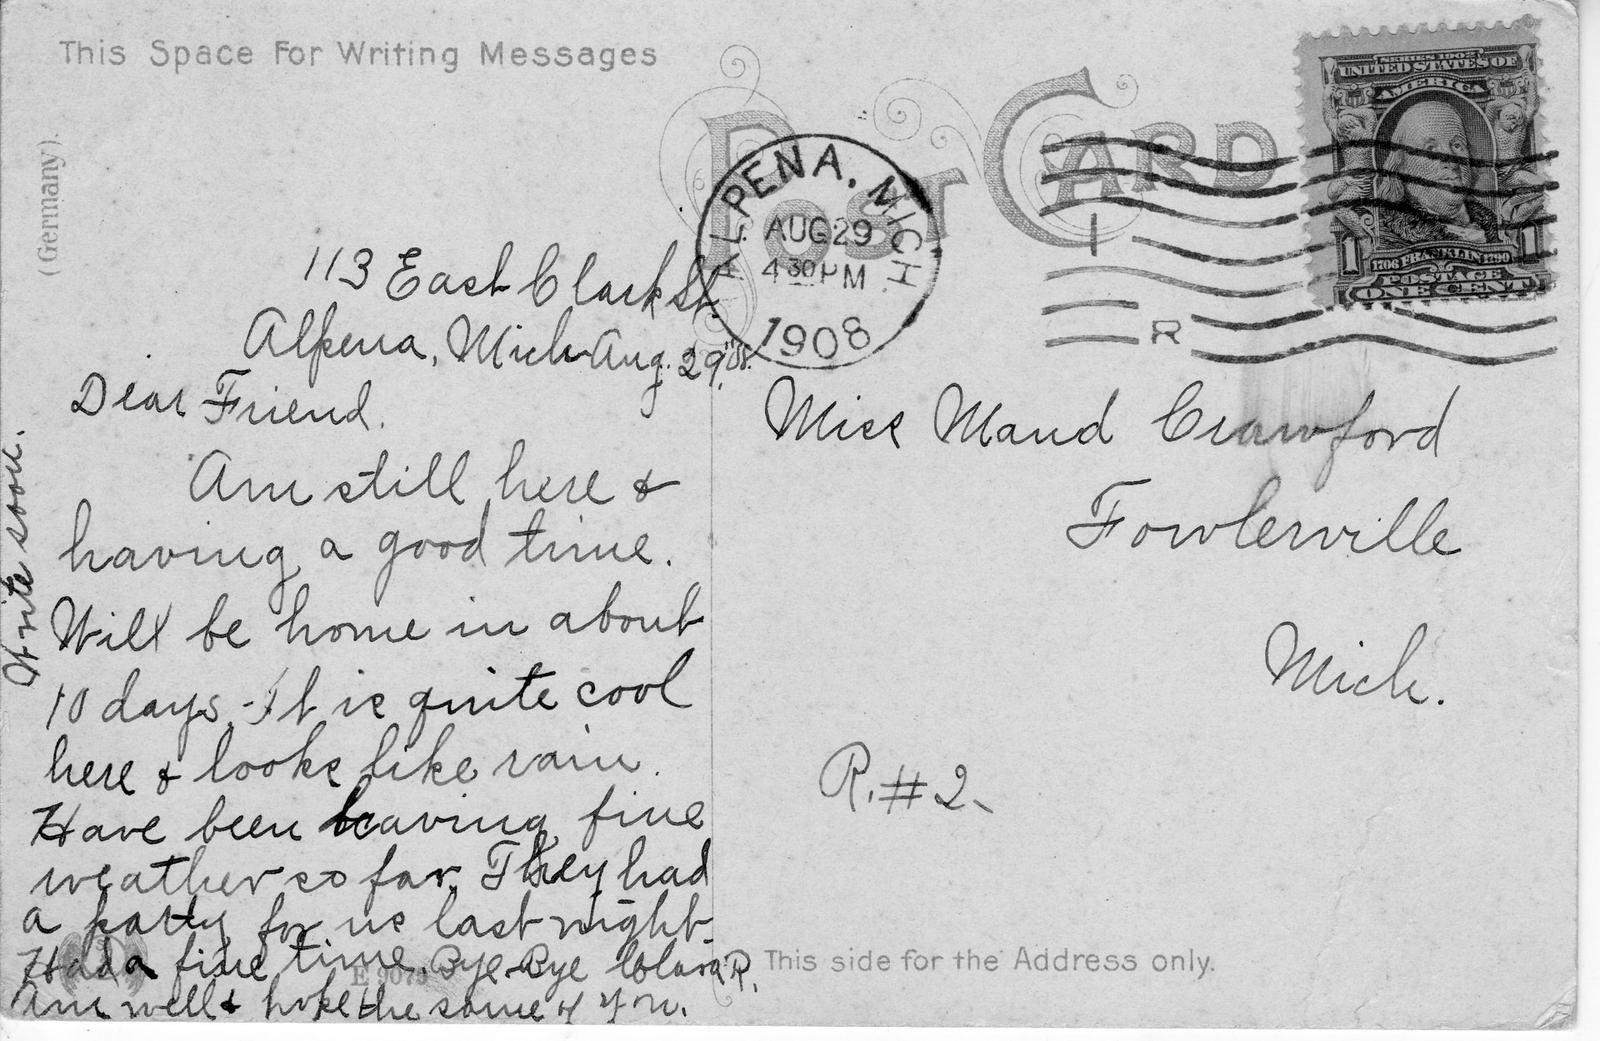 This Space For Writing Messages
POST CARD
(Germany).
SERIES 1902
UNITED STATES OF
AMERICA
1706 FRANKLIN 1790
POSTAGE
1 1
ONE CENT
ALPENA, MICH.
AUG 29
4 30 PM
1908
1
R
113 East Clark St.
Alpena, Mich. Aug. 29, '08.
Dear Friend.
Am still here &
having a good time.
Will be home in about
10 days. It is quite cool
here & looks like rain.
Have been having fine
weather so far. They had
a party for us last night.
Had a fine time. Bye-Bye Clara R.
Am well & hope the same of you.
Write soon.
E 9079
Miss Maud Crawford
Fowlerville
Mich.
R. #2.
This side for the Address only.